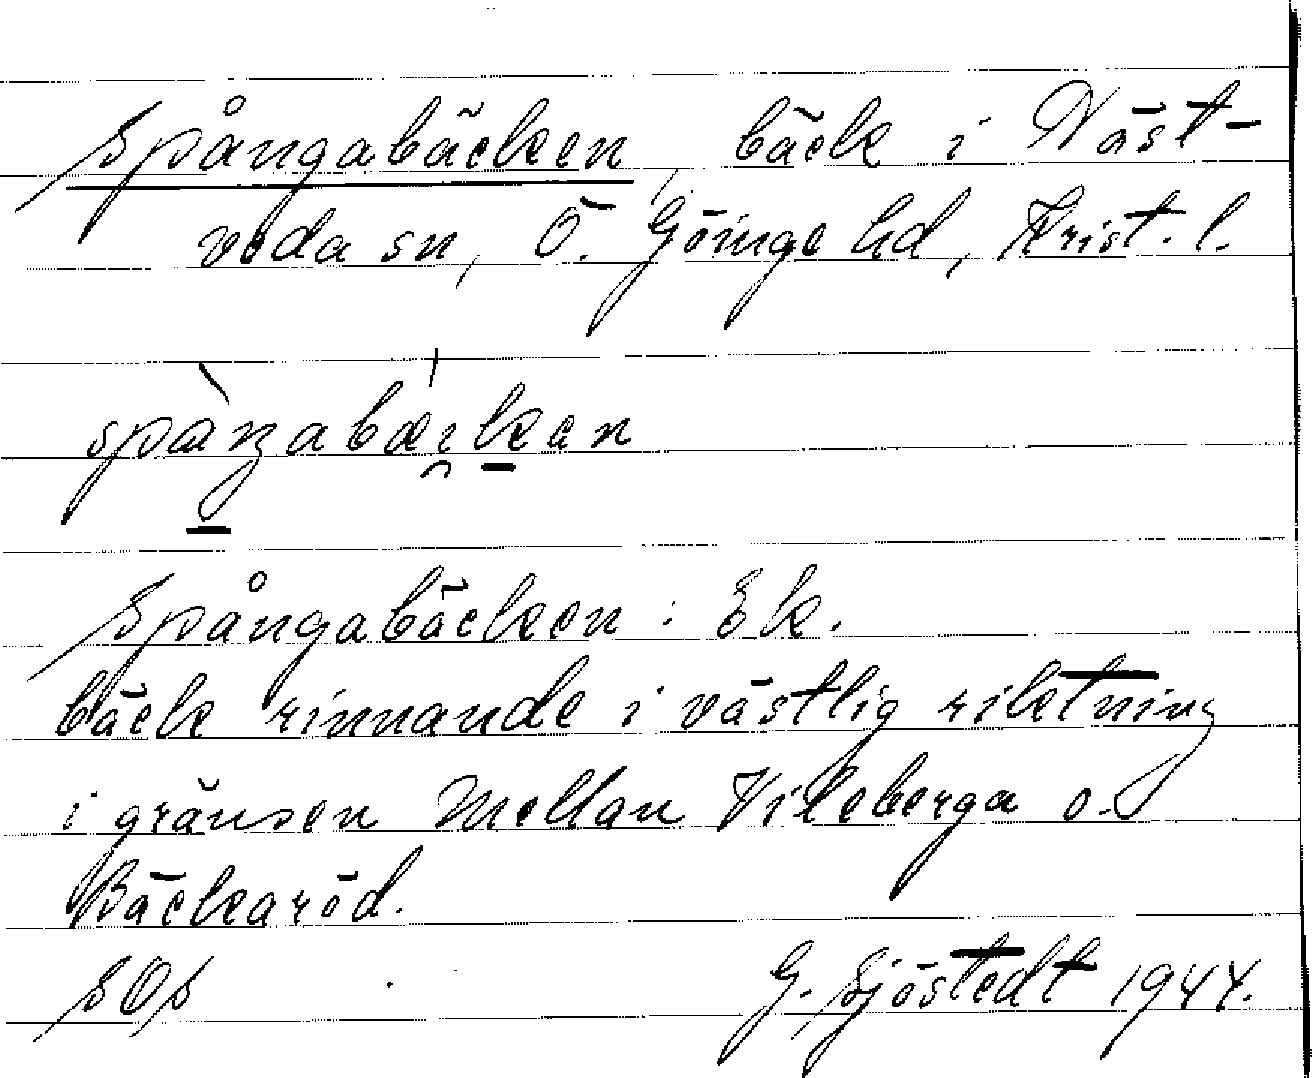 Spångabäcken, bäck i Näst-
veda sn, Ö. Göinge hd, Krist. l.
spåŋabæi̯kan
Spångabäcken : Ek.
bäck rinnande i västlig riktning
i gränsen mellan Vikeberga o.
Bäckaröd.
SOS G. Sjöstedt 1944.